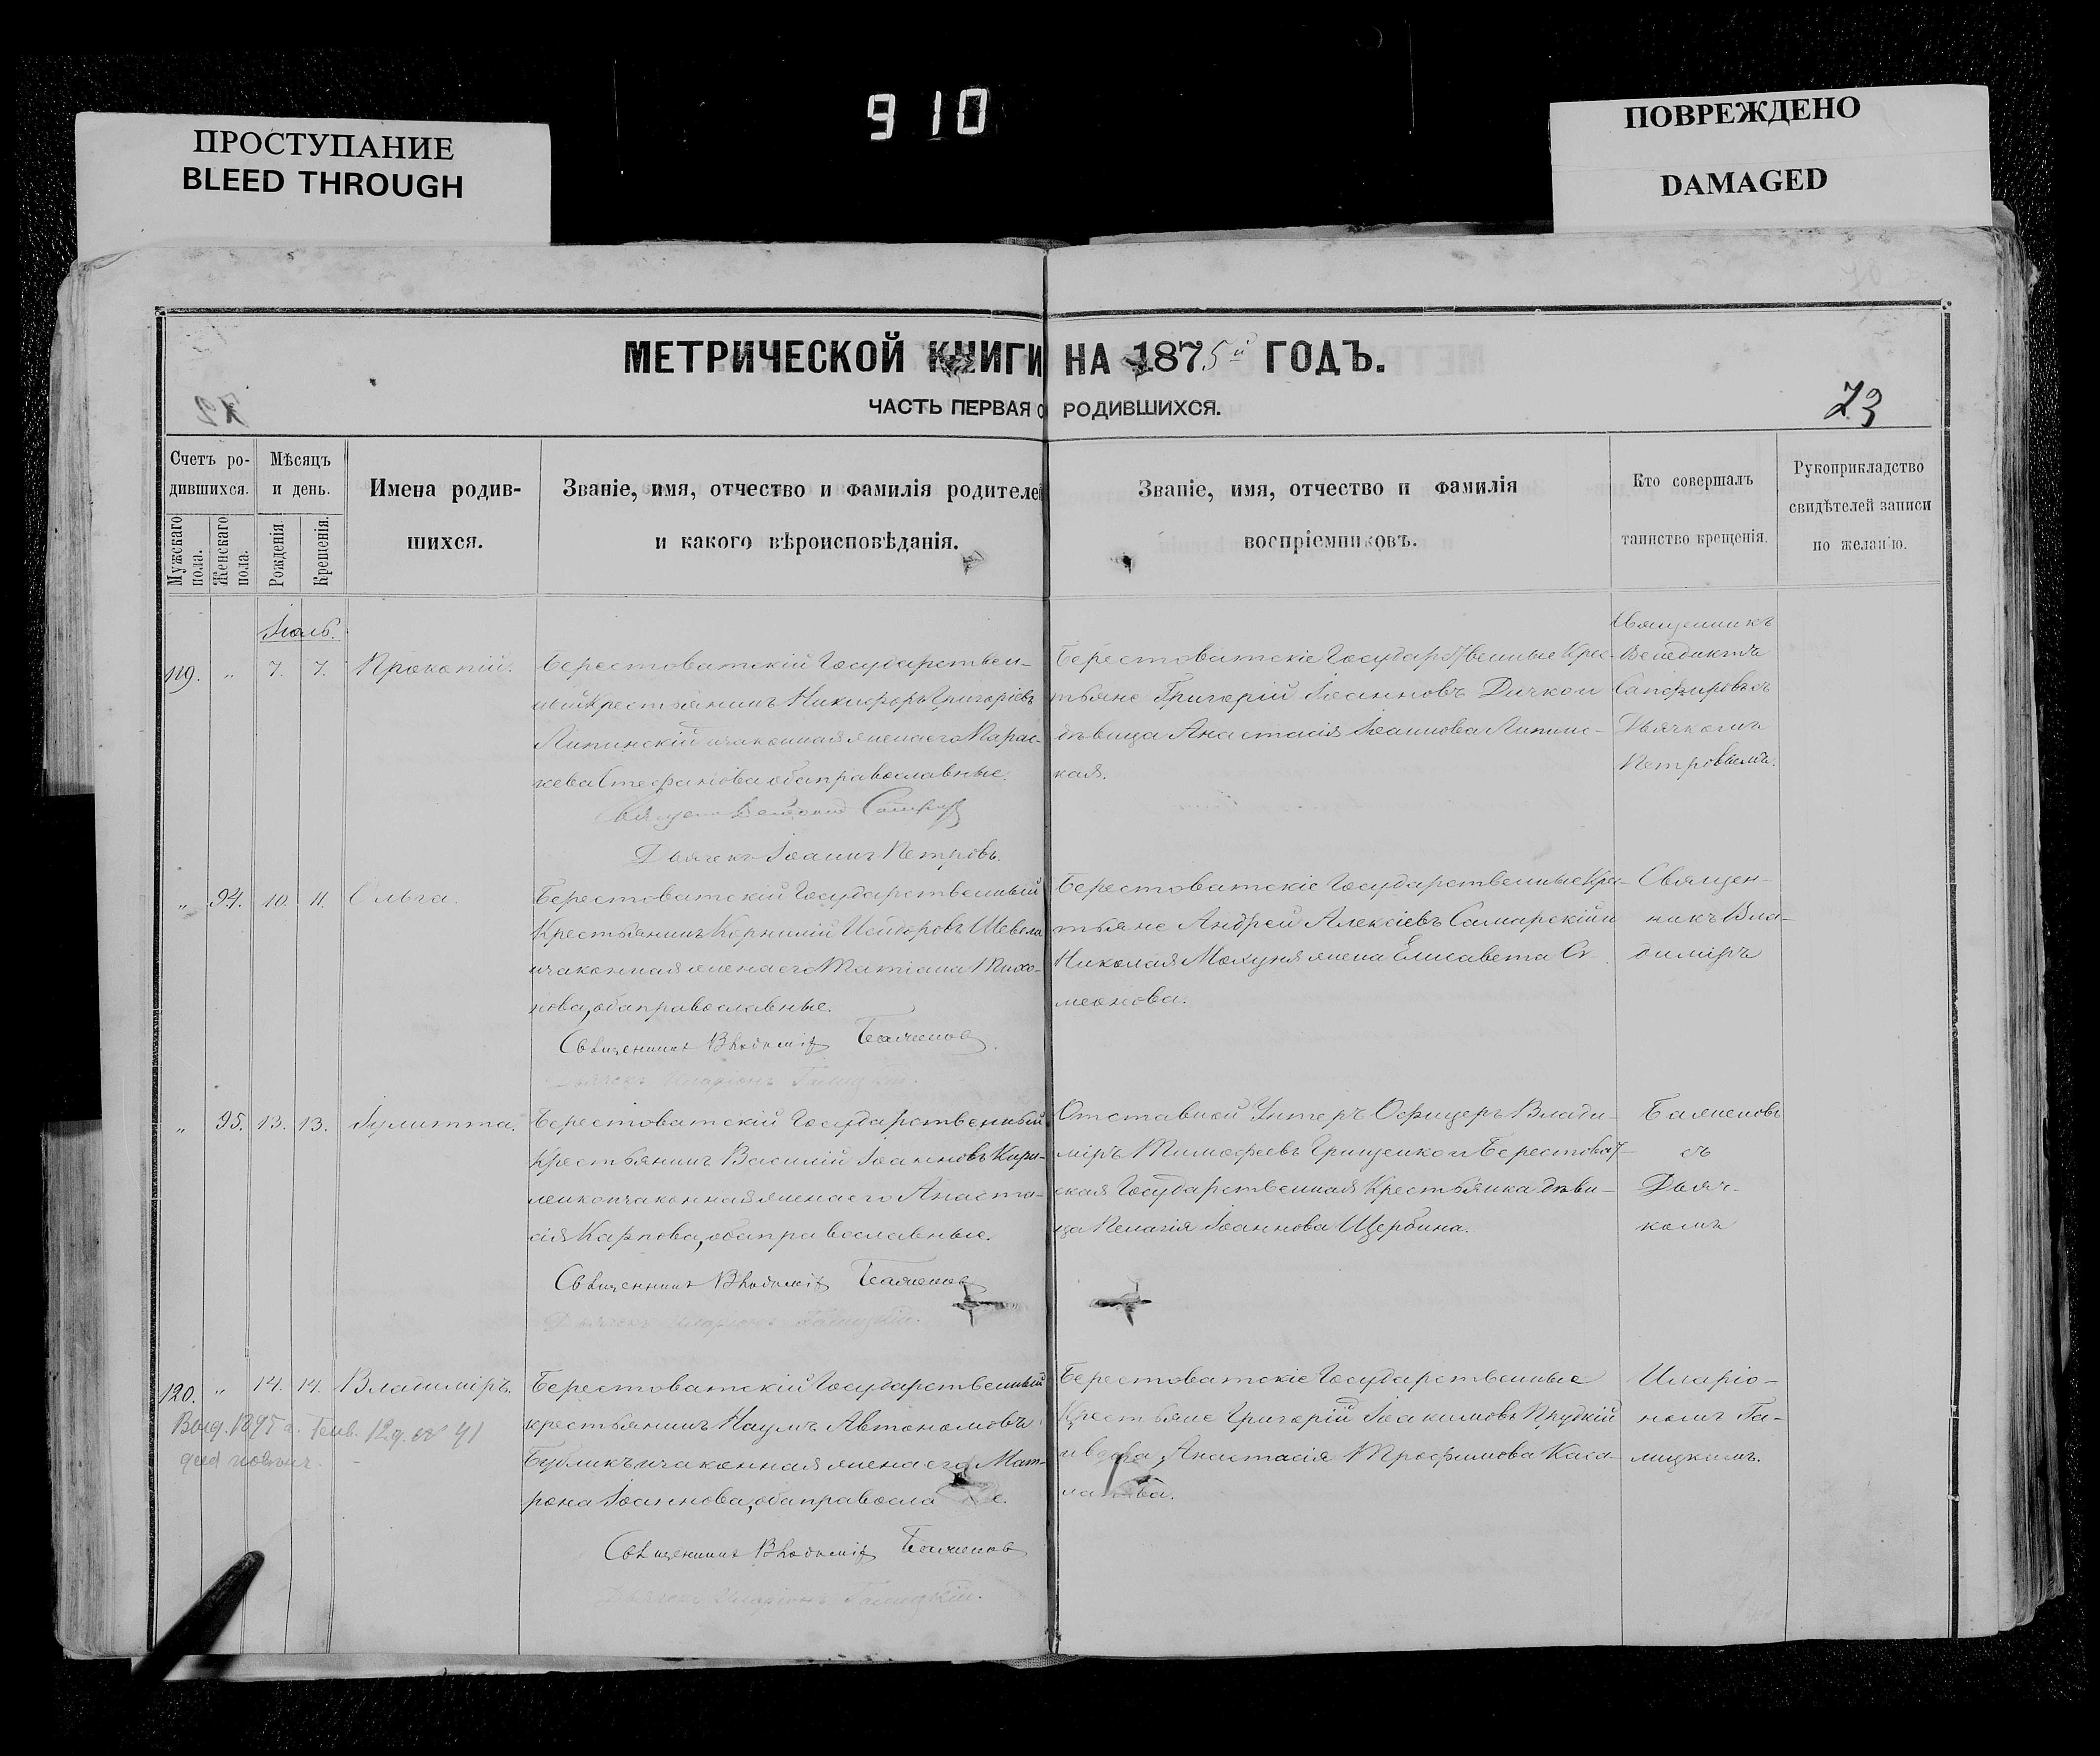 910
ПРОСТУПАНИЕ
BLEED THROUGH
ПОВРЕЖДЕНО
DAMAGED
МЕТРИЧЕСКОЙ КНИГИ НА 1875й ГОДЪ.
ЧАСТЬ ПЕРВАЯ О РОДИВШИХСЯ.
73
Счетъ ро-
дившихся.
Мужскаго пола.
Женскаго пола.
Мѣсяцъ
и день.
Рожденія
Крещенія.
Имена родив-
шихся.
Званіе, имя, отчество и фамилія родителей
и какого вѣроисповѣданія.
Званіе, имя, отчество и фамилія
воспріемниковъ.
Кто совершалъ
таинство крещенія.
Рукоприкладство
свидѣтелей записи
по желанію.
Іюль.
119. " 7. 7. Прокопій.
Берестоватскій Государствен-
ный Крестьянинъ Никифоръ Григоріевъ
Липинскій и законная жена его Парас-
кева Стефанова оба православные.
Дьячекъ Іоаннъ Петровъ.
Берестоватскіе Государственные Крес-
тьяне Григорій Іоанновъ Дичко и
дѣвица Анастасія Іоаннова Липинс-
кая.
Священникъ
Венедиктъ
Сапфировъ съ
Дьячкомъ
Петровымъ.
" 94. 10. 11. Ольга.
Берестоватскій Государственный
Крестьянинъ Корнилій Исидоровъ Шевела
и законная жена его Татіана Тихо-
нова, оба православные.
Священникъ Владиміръ Баженовъ.
Дьячекъ Иларіонъ Галицкій.
Берестоватскіе Государственные Крес-
тьяне Андрей Алексіевъ Самарскій и
Николая Молуня жена Елисавета Си-
меонова.
Священ-
никъ Вла-
диміръ
" 95. 13. 13. Іулитта.
Берестоватскій Государственный
Крестьянинъ Василій Іоанновъ Кири-
ленко и законная жена его Анаста-
сія Карпова, оба православные.
Священникъ Владиміръ Баженовъ
Дьячекъ Иларіонъ Галицкій.
Отставной Унтеръ Офицеръ Влади-
міръ Тимофеевъ Грищенко и Берестоват-
ская Государственная Крестьянка дѣви-
ца Пелагія Іоаннова Щербина.
Баженовъ
съ
Дьяч-
комъ
120. " 14. 14. Владиміръ.
Выд. 1895 г. Генв. 12 д. № 41
Берестоватскій Государственный
крестьянинъ Наумъ Автономовъ
Бубликъ и законная жена его Мат-
рона Іоаннова, оба правосла
Священникъ Владиміръ Баженовъ
Дьячекъ Иларіонъ Галицкій.
Берестоватскіе Государственные
Крестьяне Григорій Іоакимовъ
и вдова Анастасія Трофимова
Иларіо-
номъ Га-
лицкимъ.